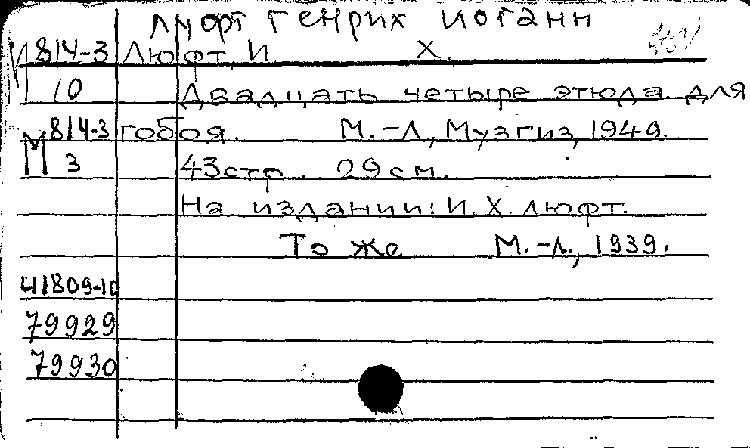 Люфт Генрих Иоганн
М 814-3 Люфт, И. Х.
10 Двадцать четыре этюда для
М 814-3 гобоя. М.-Л., Музгиз, 1949.
3 43 стр. 29 см.
На издании: И. Х. Люфт.
То же М.-Л., 1939.
41809-10
79929
79930